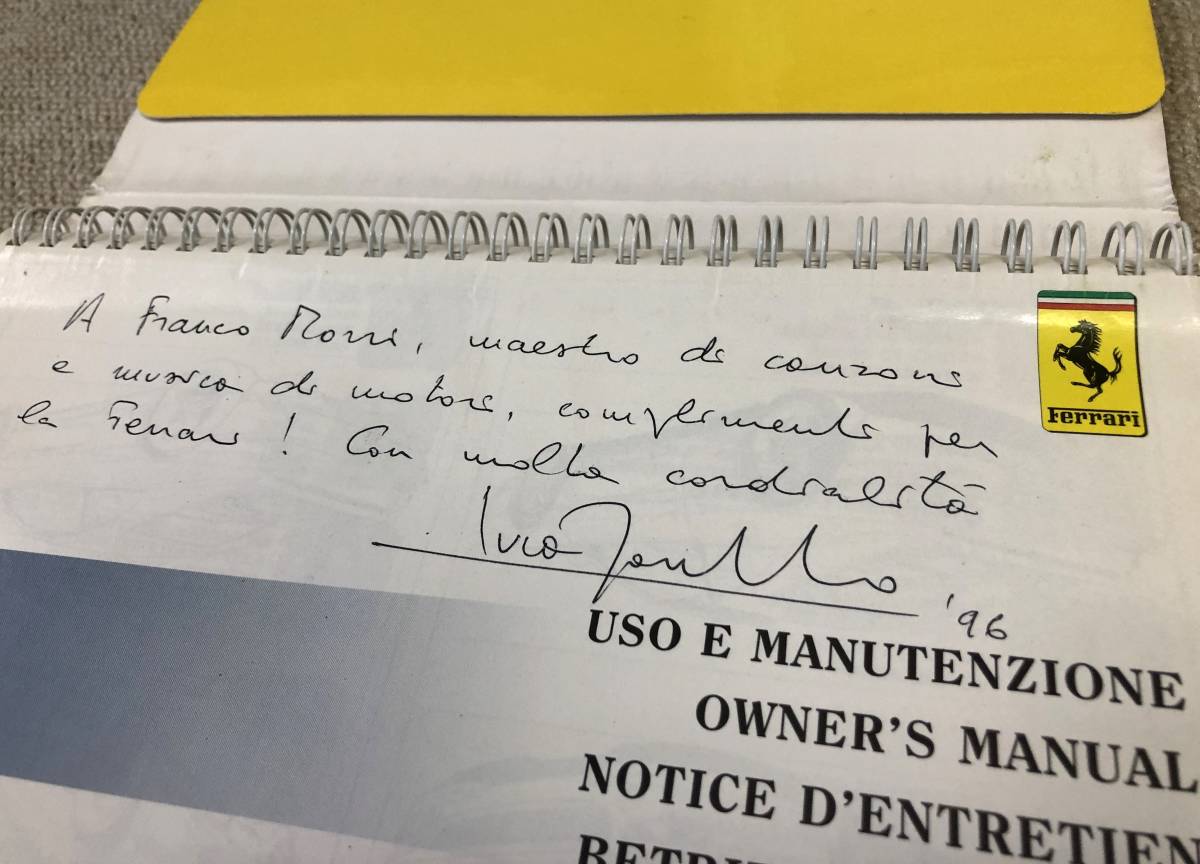 A Franco Morri, maestro di canzoni
e musica di motori, complimenti per
la Ferrari! Con molta cordialità
'96
Ferrari
USO E MANUTENZIONE
OWNER'S MANUAL
NOTICE D'ENTRETIEN